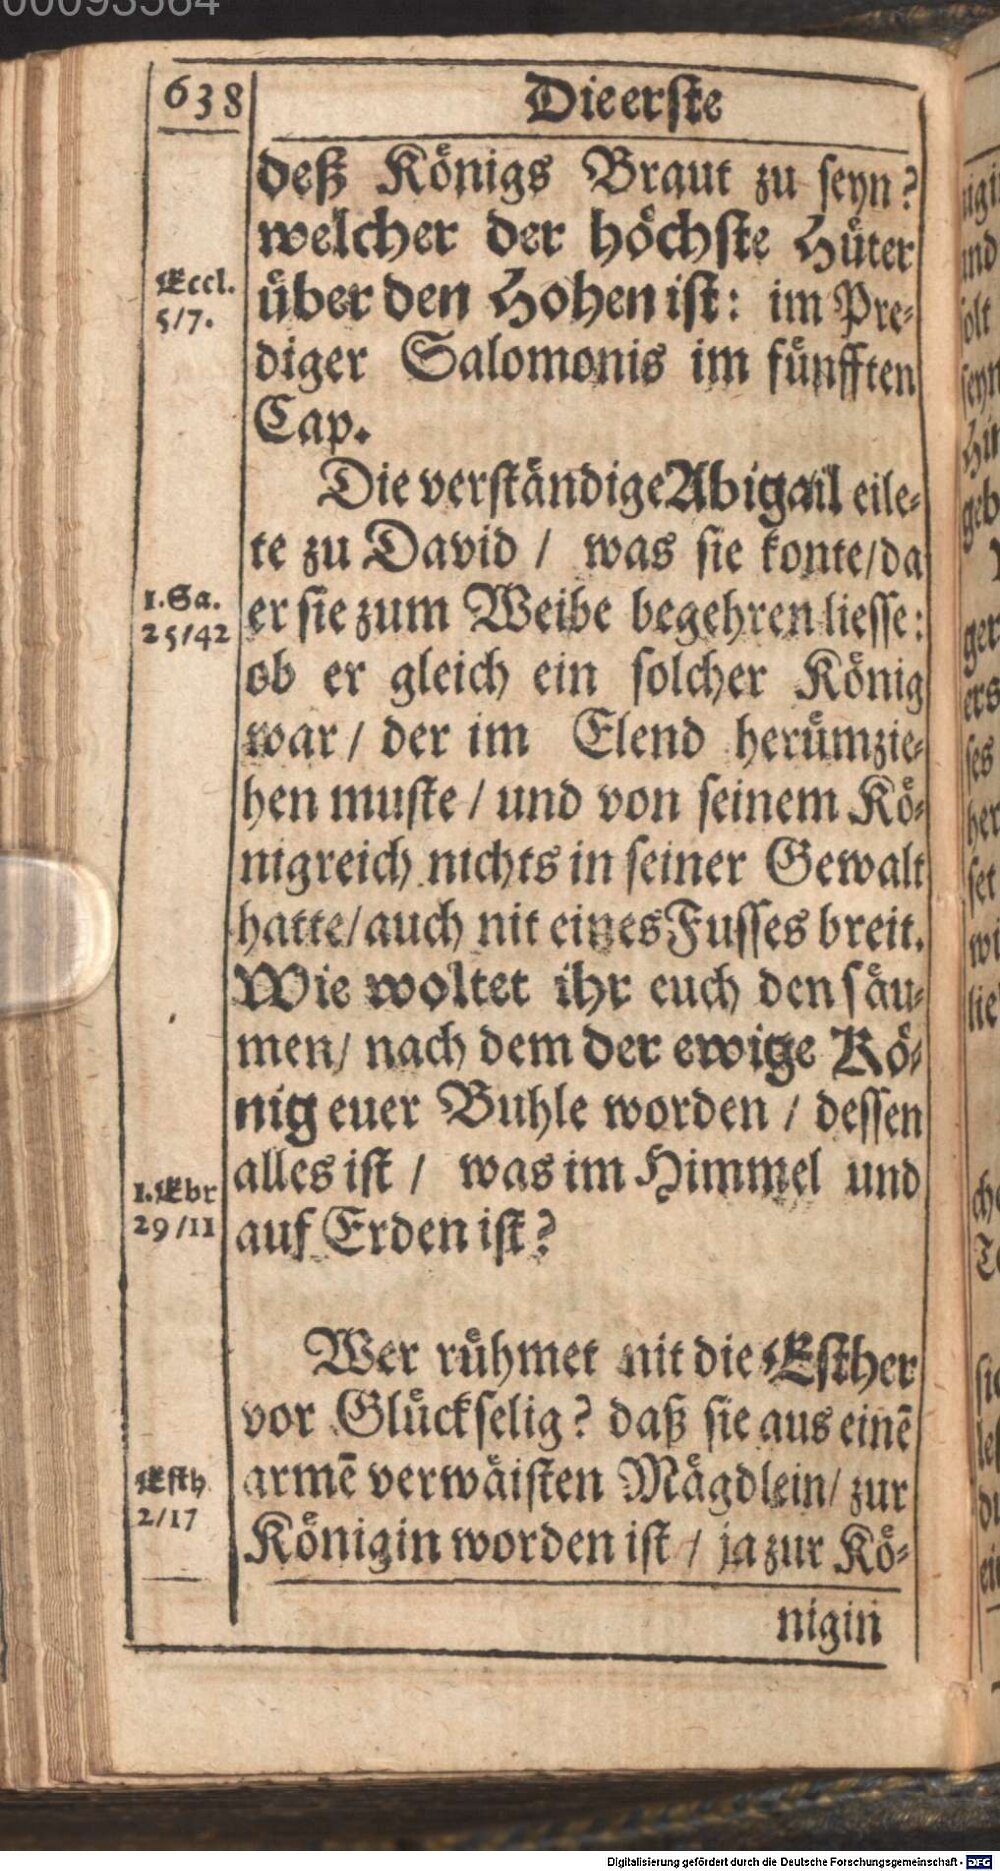 00093564
638
Die erste
deß Königs Braut zu seyn?
welcher der höchste Hüter
Eccl.
5/7.
über den Hohen ist: im Pre⸗
diger Salomonis im fünfften
Cap.
Die verständige Abigail eile⸗
te zu David / was sie konte/ da
1. Sa.
25/42
er sie zum Weibe begehren liesse:
ob er gleich ein solcher König
war / der im Elend herümzie⸗
hen muste / und von seinem Kö⸗
nigreich nichts in seiner Gewalt
hatte/ auch nit eines Fusses breit.
Wie woltet ihr euch den säu⸗
men/ nach dem der ewige Kö⸗
nig euer Buhle worden / dessen
1. Ebr
29/11
alles ist / was im Himmel und
auf Erden ist?
Wer rühmet nit die Esther
vor Glückselig? daß sie aus einē
Esth
2/17
armē verwäisten Mägdlein/ zur
Königin worden ist / ja zur Kö⸗
nigin
Digitalisierung gefördert durch die Deutsche Forschungsgemeinschaft - DFG